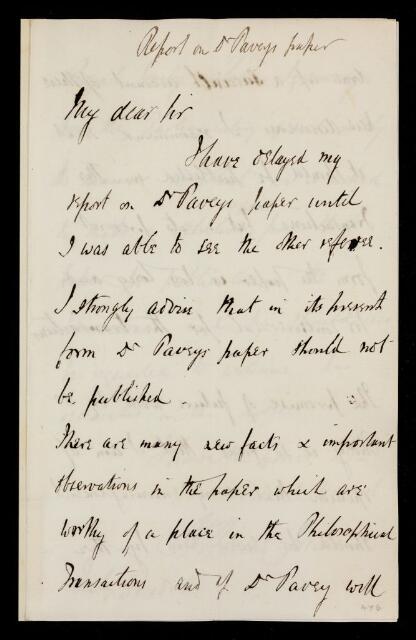 Report on Dr Paveys paper
My dear Sir
I have delayed my
report on Dr Paveys paper until
I was able to see the other referee.
I strongly advise that in its present
form Dr Paveys paper should not
be published.
There are many new facts & important
observations in the paper which are
worthy of a place in the Philosophical
Transactions and if Dr Pavey will